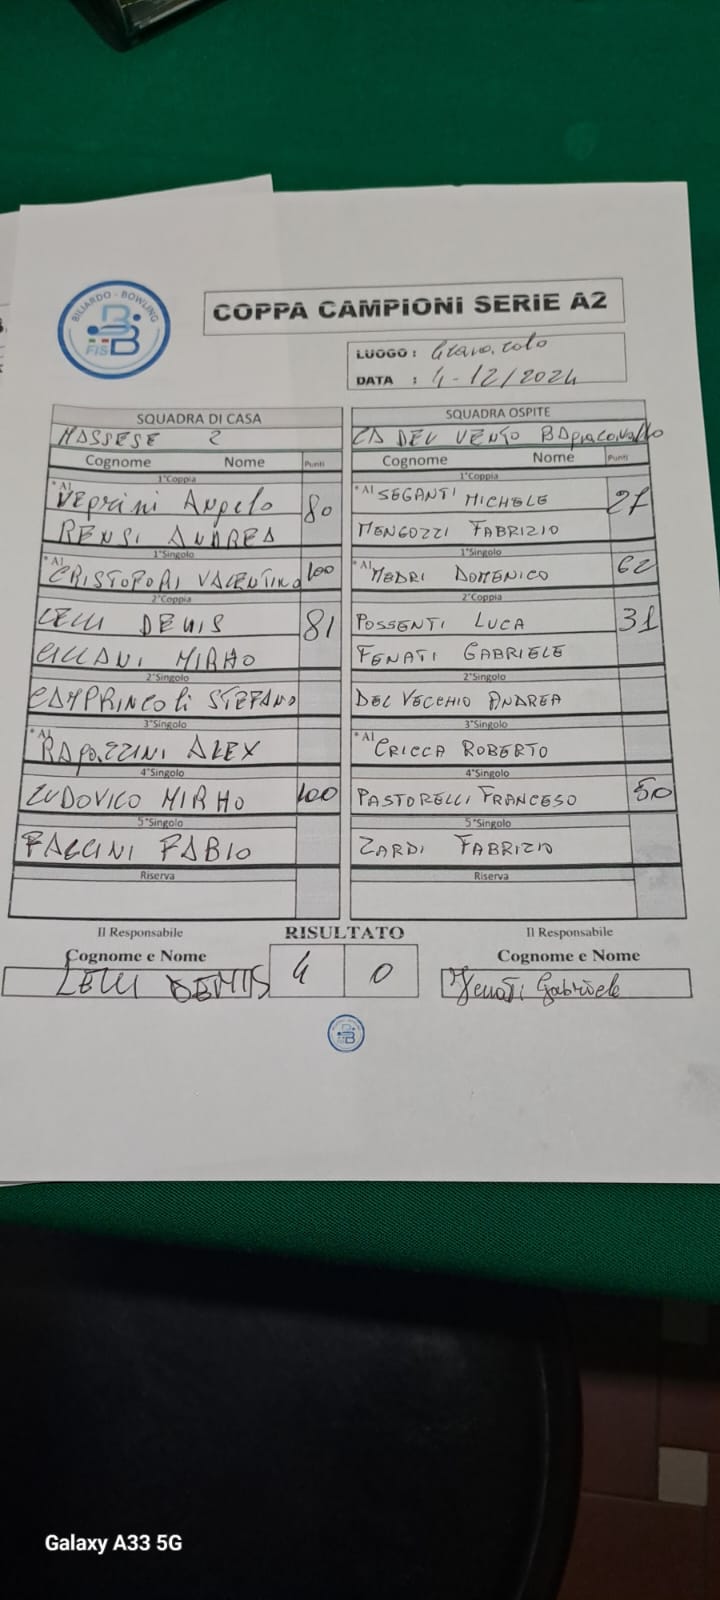 BILIARDO - BOWLING
FISBB
COPPA CAMPIONI SERIE A2
LUOGO :
DATA : 4-12/2024
SQUADRA DI CASA SQUADRA OSPITE
MASSESE 2 CA DEL VENTO
Cognome Nome Punti Cognome Nome Punti
1°Coppia 1°Coppia
*A1 Veprini Angelo 80 *A1 SEGANTI MICHELE 27
RENSI ANDREA MENGOZZI FABRIZIO
1°Singolo 1°Singolo
*A1 CRISTOFORI VALENTINO 100 *A1 MEDRI DOMENICO 62
2°Coppia 2°Coppia
LELLI DENIS 81 POSSENTI LUCA 31
CILLANI MIRHO FENATI GABRIELE
2°Singolo 2°Singolo
CAMPRINCOLI STEFANO DEL VECCHIO ANDREA
3°Singolo 3°Singolo
*A1 RAPAZZINI ALEX *A1 CRICCA ROBERTO
4°Singolo 4°Singolo
LUDOVICO MIRHO 100 PASTORELLI FRANCESO 50
5°Singolo 5°Singolo
FACCINI FABIO ZARDI FABRIZIO
Riserva Riserva
Il Responsabile RISULTATO Il Responsabile
Cognome e Nome Cognome e Nome
LELLI DENIS 4 0 Fenati Gabriele
Galaxy A33 5G